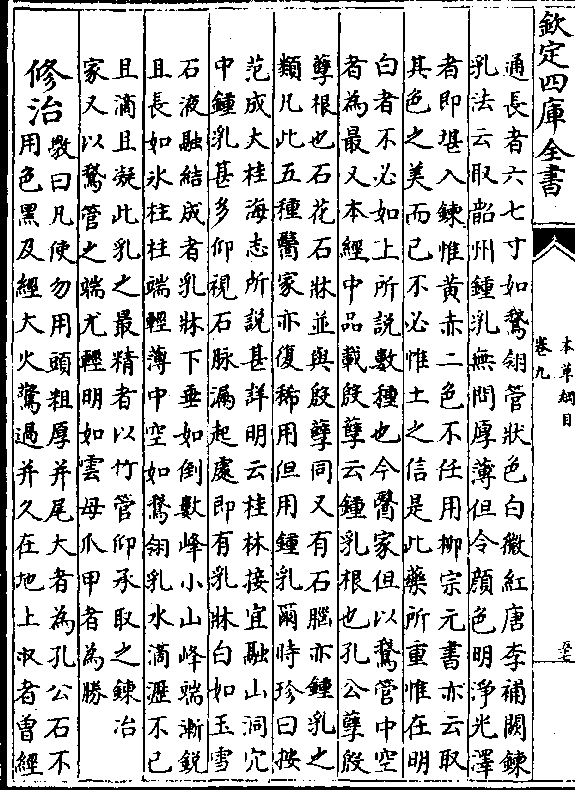 欽定四庫全書
本草綱目
卷九
通長者六七寸如鵞翎管狀色白微紅唐李補闕鍊
乳法云取韶州鍾乳無問厚薄但令顔色明淨光澤
者即堪入鍊惟黄赤二色不任用柳宗元書亦云取
其色之美而已不必惟土之信是此藥所重惟在明
白者不必如上所說數種也今醫家但以鵞管中空
者為最又本經中品載殷孽云鍾乳根也孔公孽殷
孽根也石花石牀並與殷孽同又有石腦亦鍾乳之
類凡此五種醫家亦復稀用但用鍾乳爾時珍曰按
范成大桂海志所說甚詳明云桂林接宜融山洞穴
中鍾乳甚多仰視石脉漏起處即有乳牀白如玉雪
石液融結成者乳牀下垂如倒數峰小山峰端漸鋭
且長如氷柱柱端輕薄中空如鵞翎乳水滴瀝不已
且滴且凝此乳之最精者以竹管仰承取之鍊冶
家又以鵞管之端尤輕明如雲母爪甲者為勝
修治
斆曰凡使勿用頭粗厚并尾大者為孔公石不
用色黑及經大火驚過并久在地上收者曾經